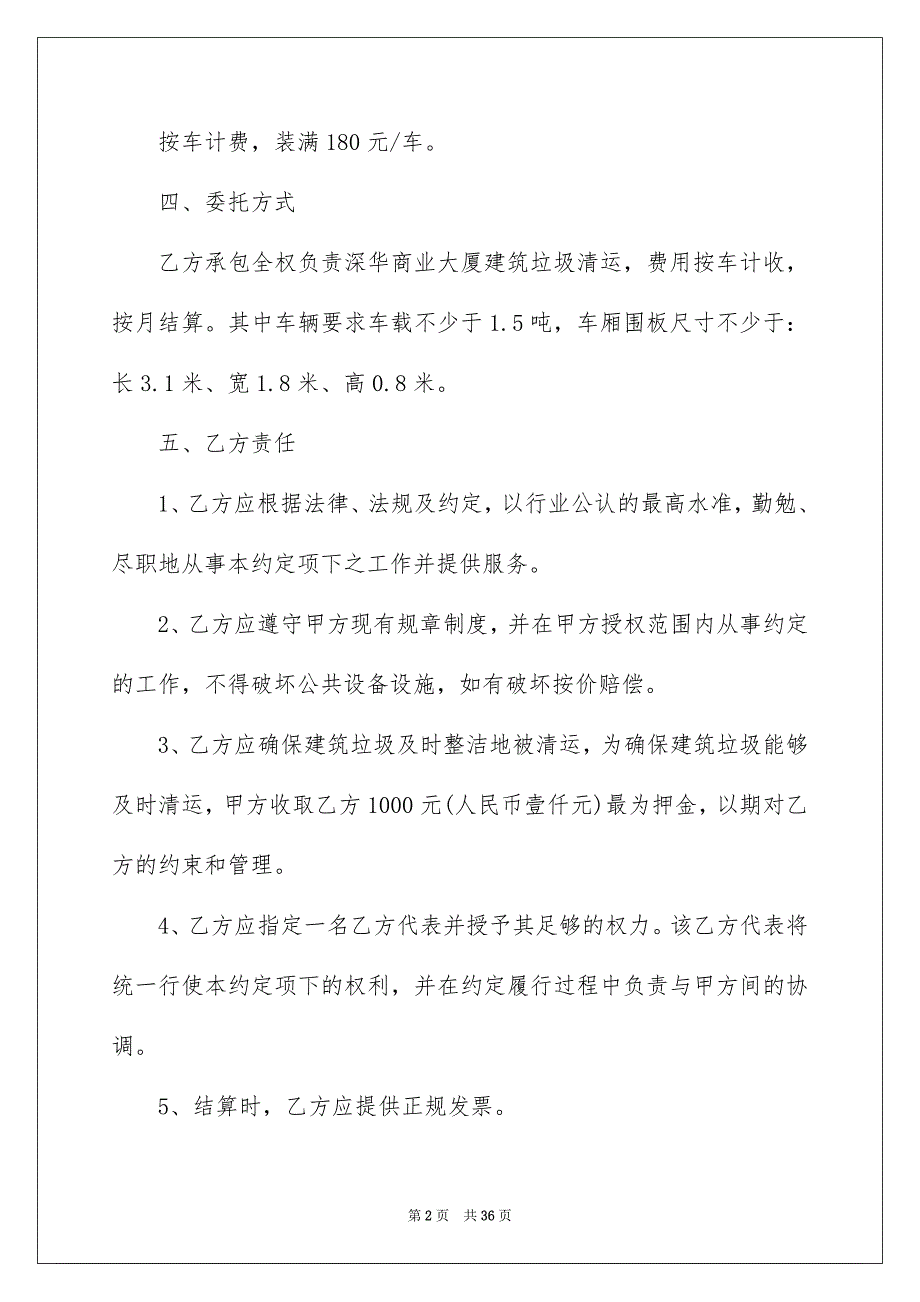 按车计费，装满180元/车。
四、委托方式
乙方承包全权负责深华商业大厦建筑垃圾清运，费用按车计收，
按月结算。其中车辆要求车载不少于1.5吨，车厢围板尺寸不少于：
长3.1米、宽1.8米、高0.8米。
五、乙方责任
1、乙方应根据法律、法规及约定，以行业公认的最高水准，勤勉、
尽职地从事本约定项下之工作并提供服务。
2、乙方应遵守甲方现有规章制度，并在甲方授权范围内从事约定
的工作，不得破坏公共设备设施，如有破坏按价赔偿。
3、乙方应确保建筑垃圾及时整洁地被清运，为确保建筑垃圾能够
及时清运，甲方收取乙方1000元(人民币壹仟元)最为押金，以期对乙
方的约束和管理。
4、乙方应指定一名乙方代表并授予其足够的权力。该乙方代表将
统一行使本约定项下的权利，并在约定履行过程中负责与甲方间的协
调。
5、结算时，乙方应提供正规发票。
第2页 共36页